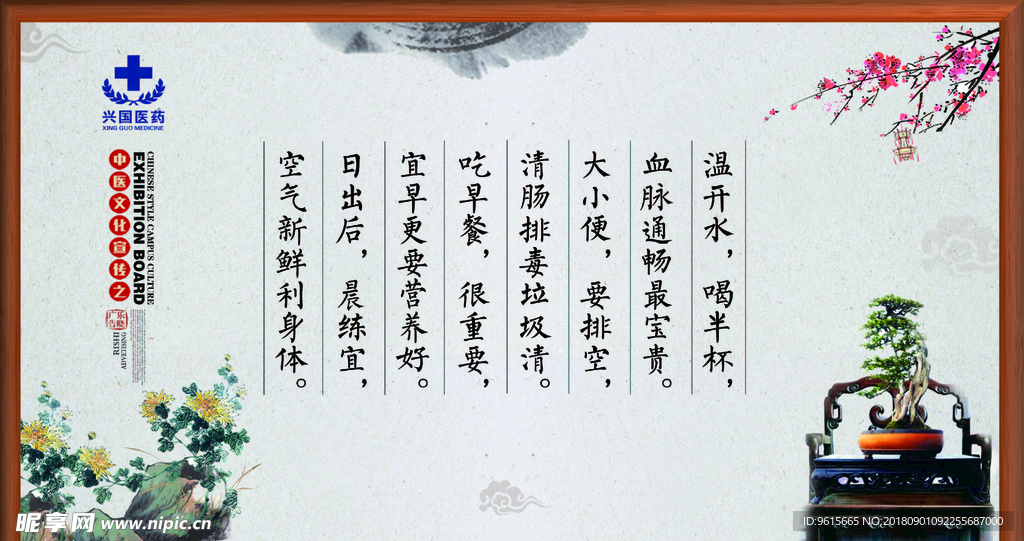 温开水，喝半杯，
血脉通畅最宝贵。
大小便，要排空，
清肠排毒垃圾清。
吃早餐，很重要，
宜早更要营养好。
日出后，晨练宜，
空气新鲜利身体。
兴国医药
XING GUO MEDICINE
中医文化宣传之
CHINESE STYLE CAMPUS CULTURE
EXHIBITION BOARD
乐晓广告
RUSHI
ADVERTISING
昵享网 www.nipic.cn
ID:9615665 NO:20180901092255687000